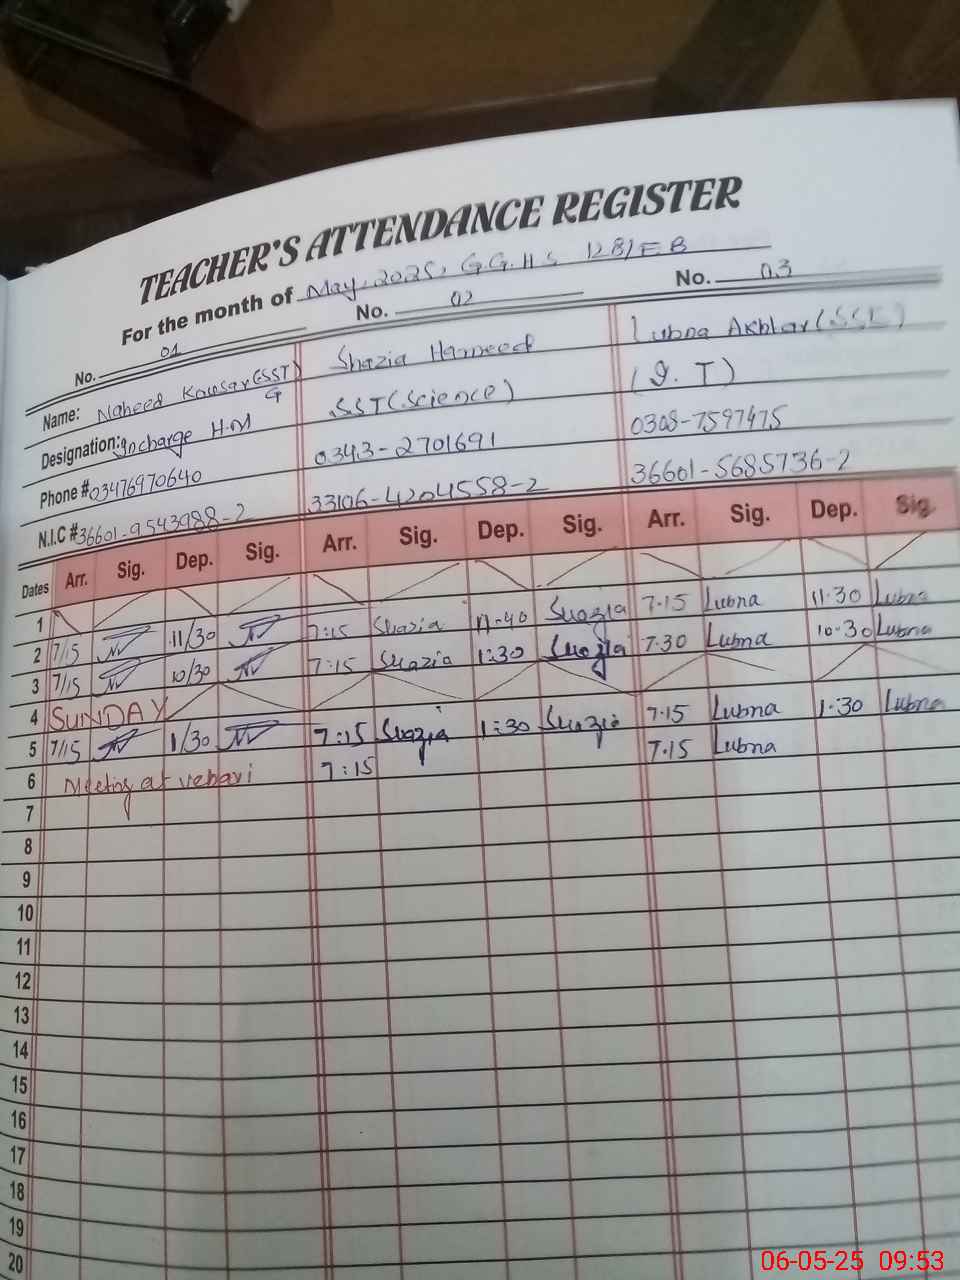 TEACHER'S ATTENDANCE REGISTER
For the month of May, 2025, G.G.H.S 128/E.B
No. 01 No. 02 No. 03
Name: Naheed Kousar (SST) G Shazia Hameed Lubna Akhtar (SSE)
Designation: Incharge H.M SST (Science) (I.T)
Phone # 03476970640 0343-2701691 0308-7597475
N.I.C # 36601-9543988-2 33106-4204558-2 36601-5685736-2
Dates Arr. Sig. Dep. Sig. Arr. Sig. Dep. Sig. Arr. Sig. Dep. Sig.
1
2 7/15 11/30 7:15 Shazia 11-40 Shazia 7-15 Lubna 11-30 Lubna
3 7/15 10/30 7:15 Shazia 1:30 Shazia 7-30 Lubna 10-30 Lubna
4 SUNDAY
5 7/15 1/30 7:15 Shazia 1:30 Shazia 7-15 Lubna 1-30 Lubna
6 Meeting at vehari 7:15 7-15 Lubna
7
8
9
10
11
12
13
14
15
16
17
18
19
20
06-05-25 09:53